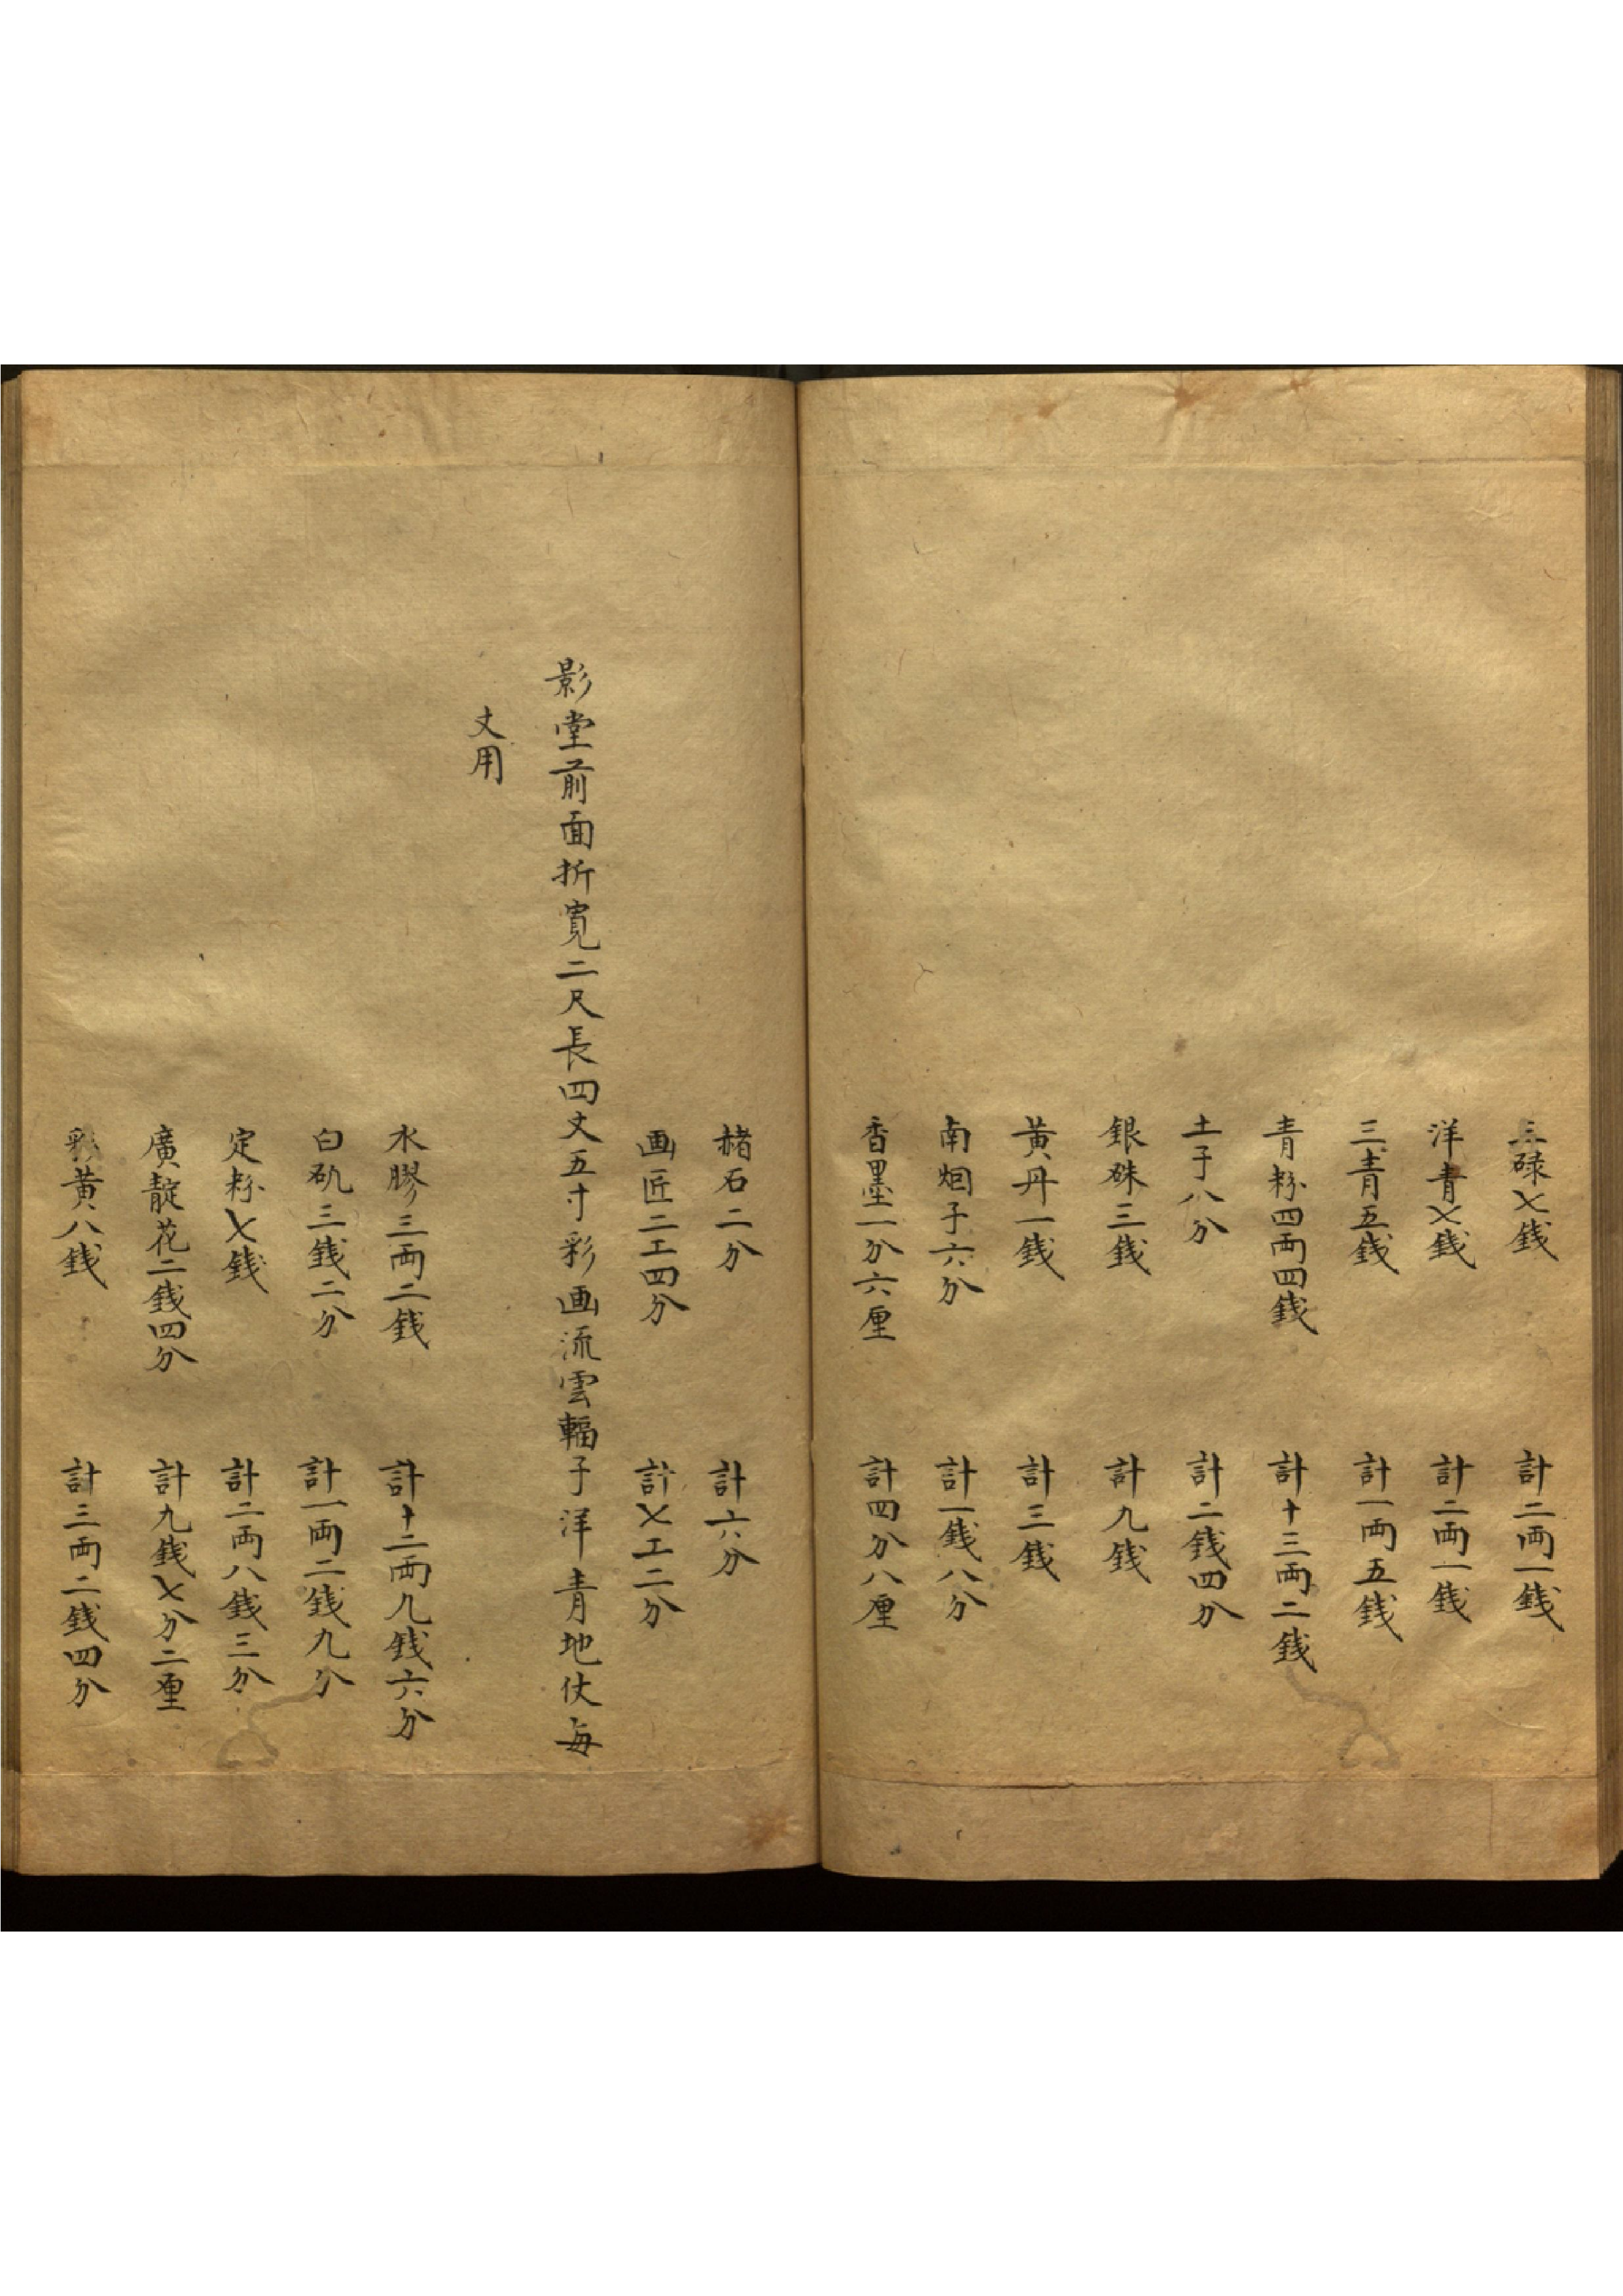 三碌七錢 計二両一錢
洋青七錢 計二両一錢
三青五錢 計一両五錢
青粉四両四錢 計十三両二錢
土子八分 計二錢四分
銀硃三錢 計九錢
黃丹一錢 計三錢
南烟子六分 計一錢八分
香墨一分六厘 計四分八厘
赭石二分 計六分
画匠二工四分 計七工二分
影堂前面折寬二尺長四丈五寸彩画流雲輻子洋青地仗每
丈用
水膠三両二錢 計十二両九錢六分
白矾三錢二分 計一両二錢九分
定粉七錢 計二両八錢三分
廣靛花二錢四分 計九錢七分二厘
彩黃八錢 計三両二錢四分